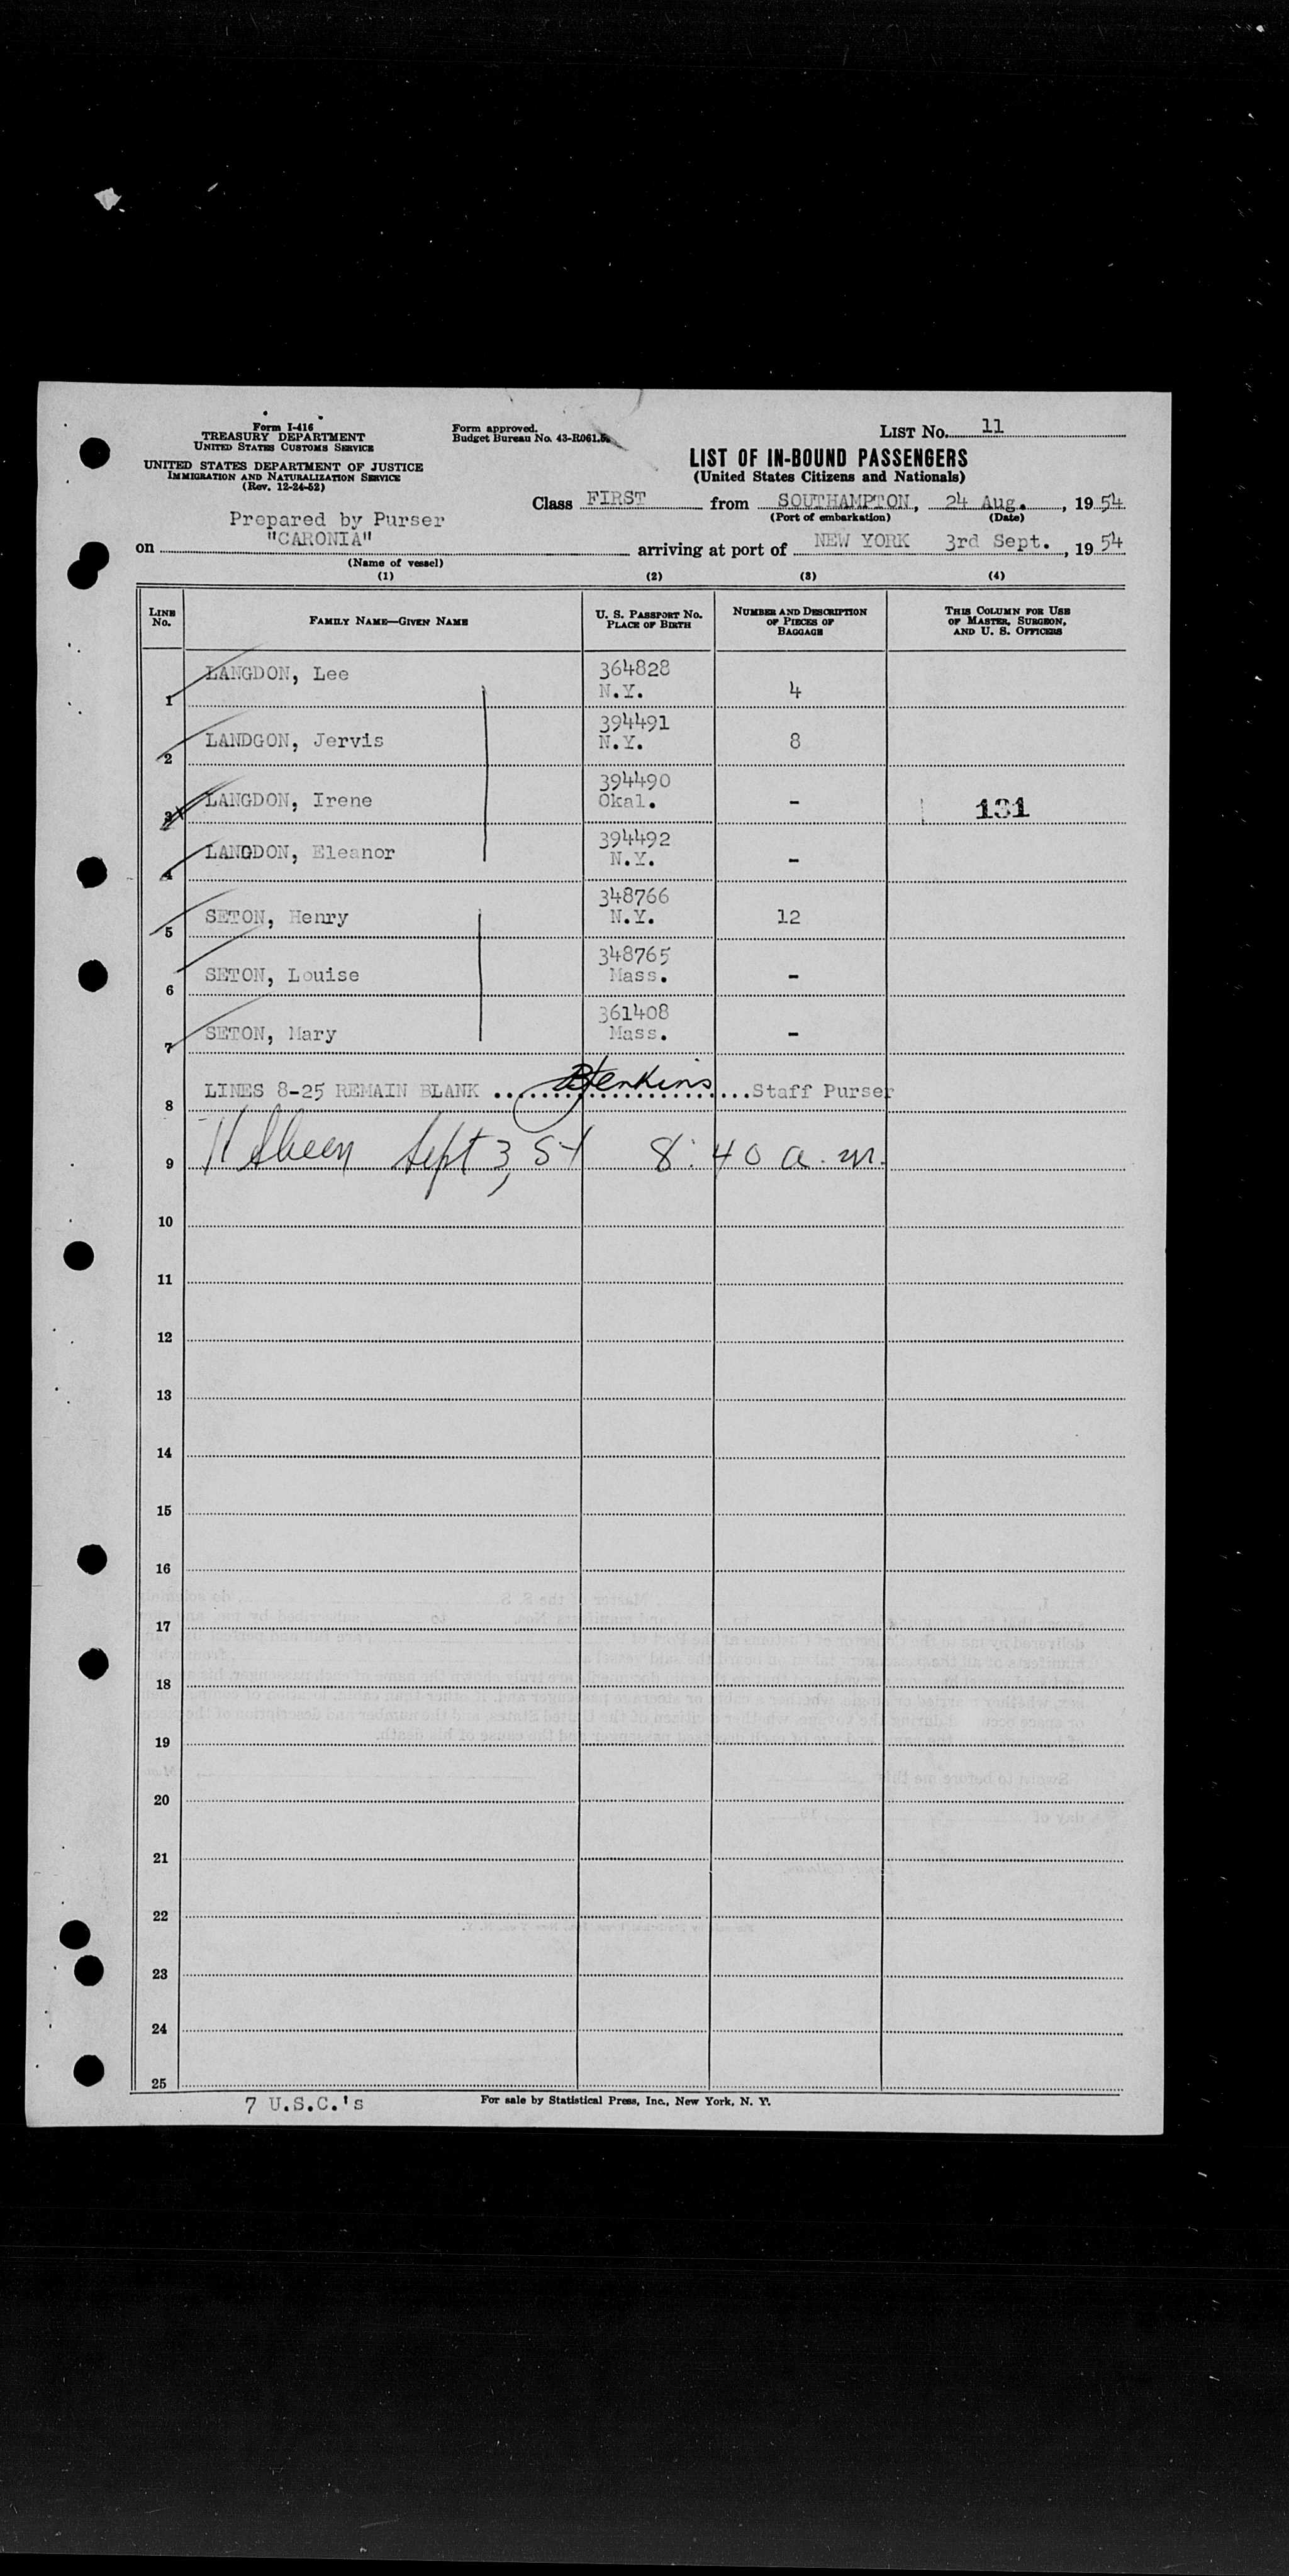 Form I-416
TREASURY DEPARTMENT
UNITED STATES CUSTOMS SERVICE
UNITED STATES DEPARTMENT OF JUSTICE
IMMIGRATION AND NATURALIZATION SERVICE
(Rev. 12-24-52)
Form approved.
Budget Bureau No. 43-R061.
LIST NO. 11
LIST OF IN-BOUND PASSENGERS
(United States Citizens and Nationals)
Class FIRST from SOUTHAMPTON, 24 Aug., 1954
(Port of embarkation) (Date)
Prepared by Purser
on "CARONIA" arriving at port of NEW YORK 3rd Sept., 1954
(Name of vessel)
(1) (2) (3) (4)
LINE NO. FAMILY NAME—GIVEN NAME U. S. PASSPORT NO. PLACE OF BIRTH NUMBER AND DESCRIPTION OF PIECES OF BAGGAGE THIS COLUMN FOR USE OF MASTER, SURGEON, AND U. S. OFFICERS
1 LANGDON, Lee 364828 N.Y. 4
2 LANDGON, Jervis 394491 N.Y. 8
3 LANGDON, Irene 394490 Okal. - 131
4 LANGDON, Eleanor 394492 N.Y. -
5 SETON, Henry 348766 N.Y. 12
6 SETON, Louise 348765 Mass. -
7 SETON, Mary 361408 Mass. -
8 LINES 8-25 REMAIN BLANK ... Jenkins ... Staff Purser
9 Sept 3, 54 8:40 a.m.
10
11
12
13
14
15
16
17
18
19
20
21
22
23
24
25
7 U.S.C.'s
For sale by Statistical Press, Inc., New York, N. Y.